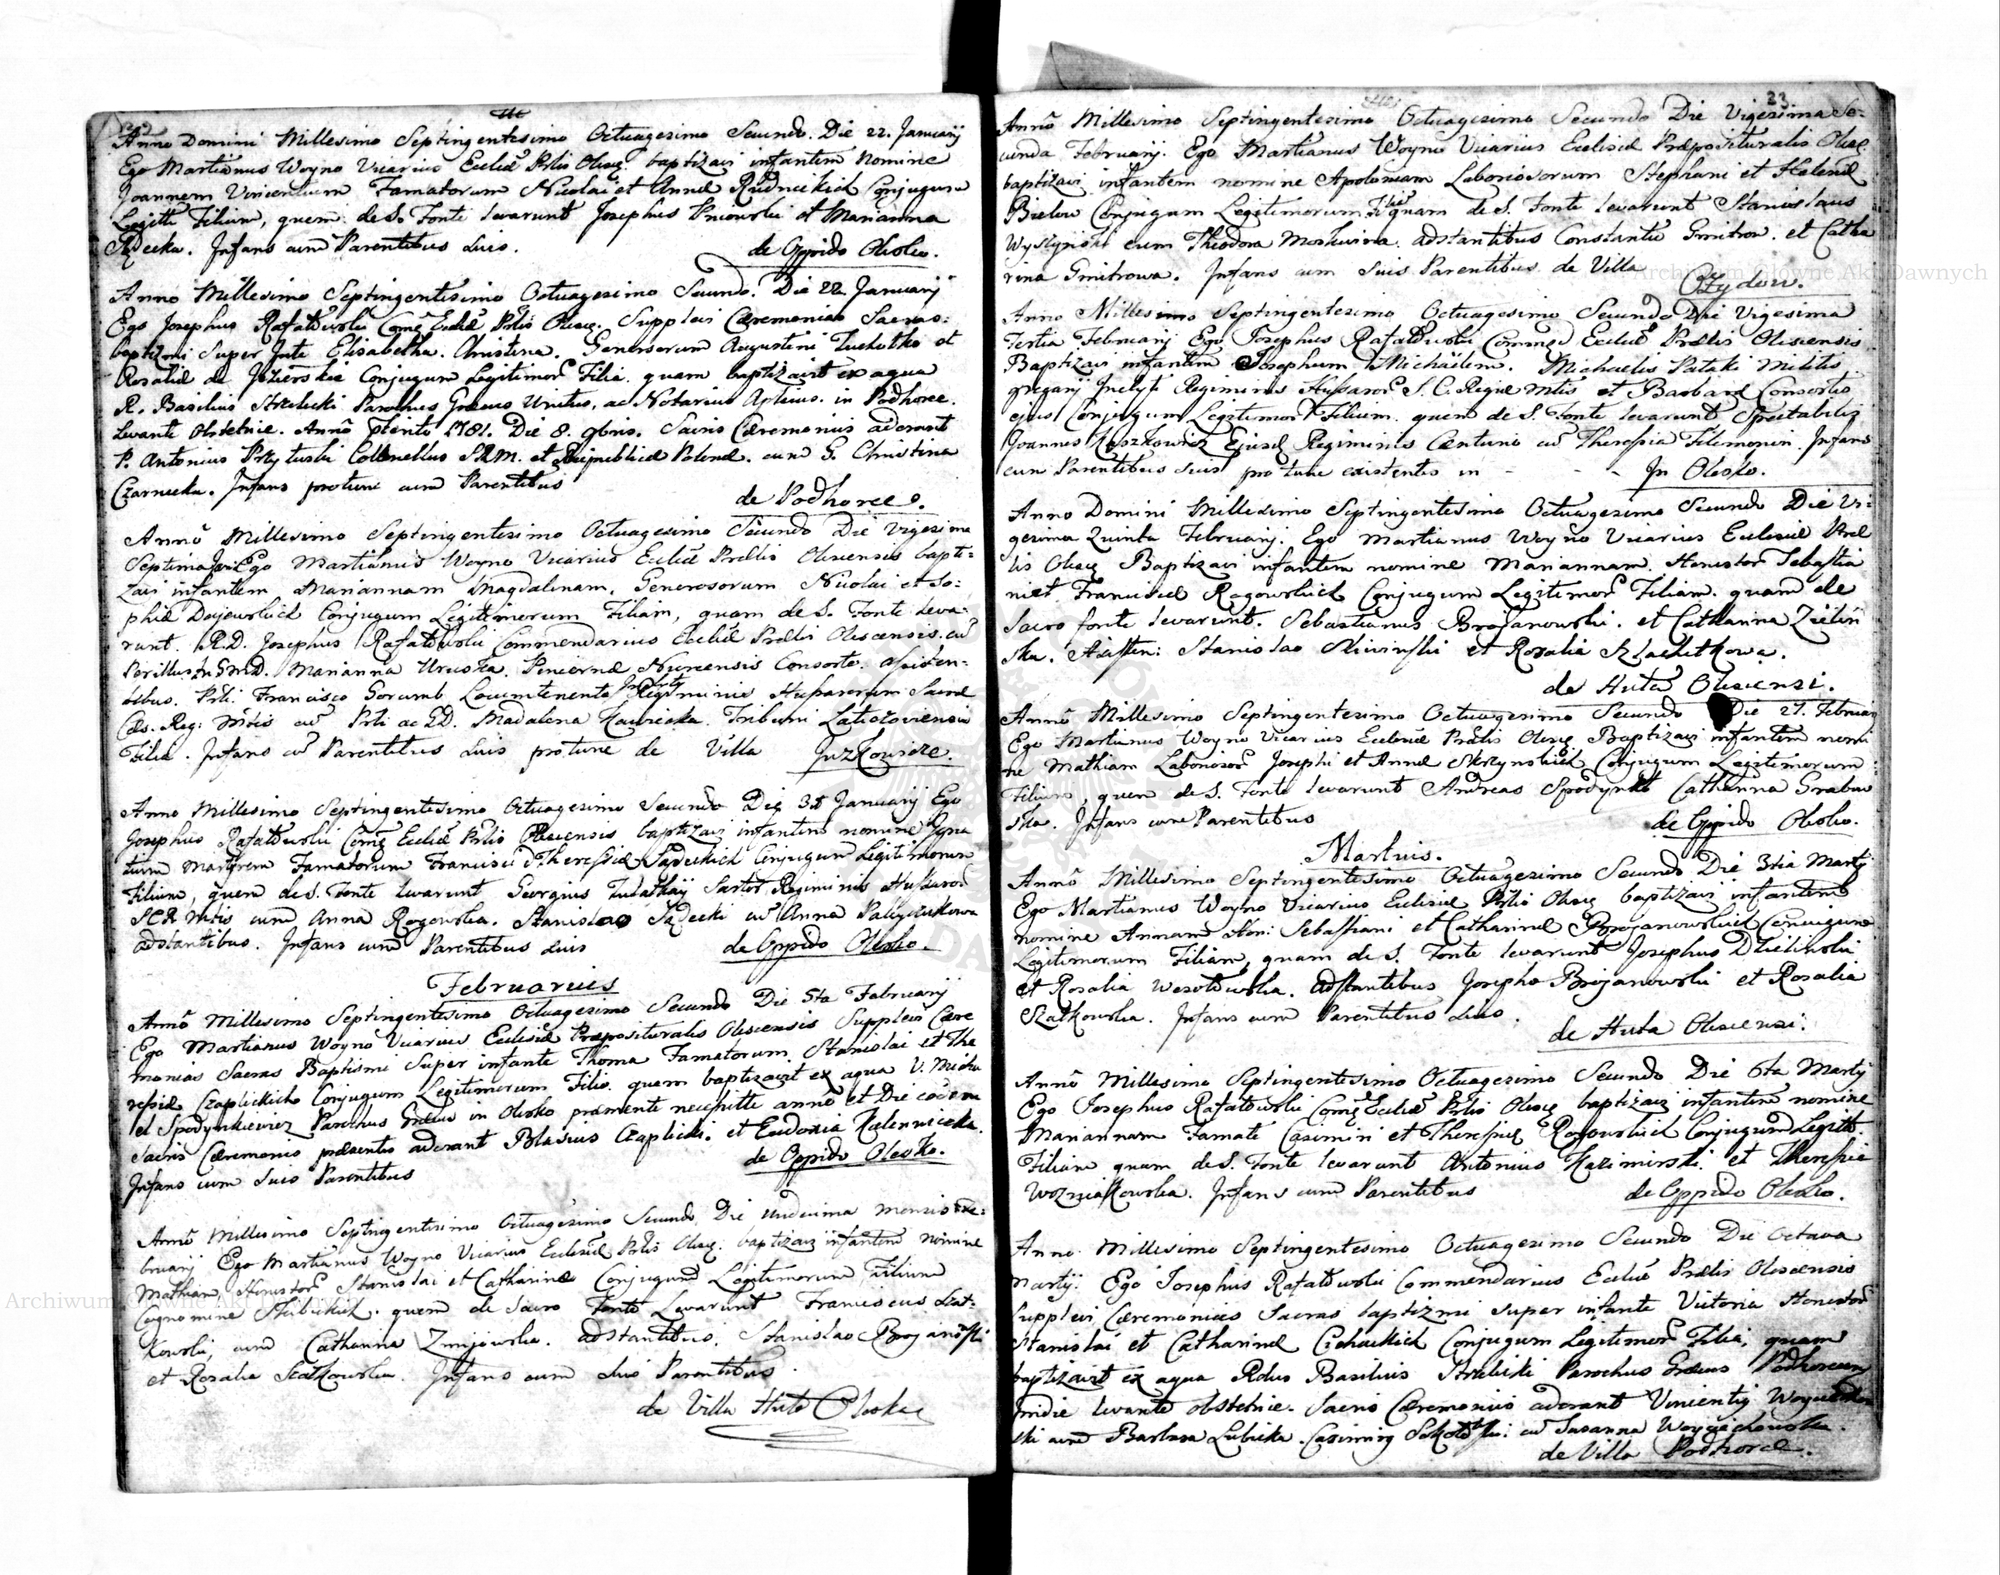 Anno Domini Millesimo Septingentesimo Octuagesimo Secundo. Die 22. Januarij
Ego Martianus Woyno Vicarius Eccliae Prlis Olisc. baptizavi infantem Nomine
Joannem Vincentium Famatorum Nicolai et Annae Rudnickich Conjugum
Legitt. Filium, quem de S. Fonte levarunt Josephus et Marianna
Infans cum Parentibus suis. de Oppido Olesko.
Anno Millesimo Septingentesimo Octuagesimo Secundo. Die 22 Januarij
Ego Josephus Rafałowski Come Eccliae Prlis Olisc. Supplevi Caeremonias Sacras
baptizmi Super Infte Elisabetha. Christina. Generosorum Augustini et
Rosaliae de Jezierskie Conjugum Legitimor Filia. quam baptizavit ex aqua
R. Basilius Strzelecki Parochus Graecus Unitus, ac Notarius in Podhorce.
Levante Obstetrice. Anno 1781. Die 8. 9bris. Sacris Caeremoniis aderant
P. Antonius Przyłuski Collonellus S.R.M. et Reipublicae Polonae. cum G. Christina
Czarnecka. Infans protunc cum Parentibus de Podhorce.
Anno Millesimo Septingentesimo Octuagesimo Secundo Die Vigesima
Septima Ego Martianus Woyno Vicarius Eccliae Prlis Oliscensis bapti-
zavi infantem Mariannam Magdalenam, Generosorum Nicolai et So-
phiae Conjugum Legitimorum Filiam, quam de S. Fonte leva-
runt. R.D. Josephus Rafałowski Commendarius Eccliae Prlis Oliscensis. cum
Marianna Uruska. Pincernae Nurcensis Consorte. assisten-
tibus. Francisco Locumtenente Inclyti Regiminis Husarorum Sacrae
Caes. Reg: Mttis cum Madalena Tribuni Laticzoviensis
Filia. Infans cum Parentibus suis protunc de Villa Juzkowice.
Anno Millesimo Septingentesimo Octuagesimo Secundo Die 31 Januarij Ego
Josephus Rafałowski Come Eccliae Prlis Oliscensis baptizavi infantem nomine Igna-
tium Martyrem Famatorum Francisci et Theresiae Sadeckich Conjugum Legitimorum
Filium, quem de S. Fonte levarunt Georgius Sartor Regiminis Husaror
S.C.R. Mttis cum Anna Rogowska. Stanislao Sadecki cum Anna
adstantibus. Infans cum Parentibus suis de Oppido Olesko.
Februarius
Anno Millesimo Septingentesimo Octuagesimo Secundo Die 5ta Februarij
Ego Martianus Woyno Vicarius Ecclesiae Praeposituralis Oliscensis Supplevi Caere
monias Sacras Baptismi Super infante Thoma Famatorum Stanislai et The
resiae Czaplickich Conjugum Legitimorum Filio. quem baptizavit ex aqua V. Micha
el Spodynkiewicz Parochus Graecus in Olesko praemente necessitte anno et Die eodem
Sacris Caeremoniis praesentes aderant Blasius Czaplicki. et Eudoxia
Infans cum Suis Parentibus de Oppido Olesko.
Anno Millesimo Septingentesimo Octuagesimo Secundo. Die undecima mensis Fe-
bruarij Ego Martianus Woyno Vicarius Ecclesiae Prlis Olisc. baptizavi infantem nomine
Mathiam, Honestor Stanislai et Catharinae Conjugum Legitimorum Filium
Cognomine quem de Sacro Fonte Levarunt Franciscus Szat-
kowski, cum Catharina Zmijowska. adstantibus. Stanislao Brojanowski
et Rosalia Szatkowska. Infans cum suis Parentibus
de Villa Huta Oleska
23
Anno Millesimo Septingentesimo Octuagesimo Secundo Die Vigesima Se-
cunda Februarij. Ego Martianus Woyno Vicarius Ecclesiae Praeposituralis Olisc.
baptizavi infantem nomine Apoloniam Laboriosorum Stephani et Helenae
Conjugum Legitimorum Fil. quam de S. Fonte levarunt Stanislaus
Wyszynski cum Theodora adstantibus Constantio Gmitrow. et Catha
rina Gmitrowa. Infans cum Suis Parentibus de Villa Ożydow.
Anno Millesimo Septingentesimo Octuagesimo Secundo Die Vigesima
Tertia Februarij Ego Josephus Rafałowski Commen Eccliae Prlis Oliscensis
Baptizavi infantem Josephum Michaëlem. Michaelis Pataki Militis
gregarij Inclyti Regiminis Husaror S. C. Regiae Mttis et Barbarae Consortis
ejus Conjugum Legitimor Filium. quem de S. Fonte levarunt Spectabilis
Joannes Ejusd Regiminis Centurio cum Theresia Infans
cum Parentibus suis pro tunc existentes in - - - In Olesko.
Anno Domini Millesimo Septingentesimo Octuagesimo Secundo Die Vi-
gesima Quinta Februarij. Ego Martianus Woyno Vicarius Ecclesiae Prael
lis Olisc Baptizavi infantem nomine Mariannam. Honestor Sebastia
ni et Franciscae Rogowskich Conjugum Legitimor Filiam. quam de
Sacro fonte levarunt. Sebastianus Brojanowski. et Catharina Zielin
ska. Assisten: Stanislao Sliwinski et Rosalia Szlachetkowa.
de Huta Oliscensi.
Anno Millesimo Septingentesimo Octuagesimo Secundo Die 27. Februarij
Ego Martianus Woyno Vicarius Ecclesiae Prlis Olisc Baptizavi infantem nomi
ne Mathiam Laborosor Josephi et Annae Skrzynskich Conjugum Legitimorum
Filium, quem de S. Fonte levarunt Andreas Catharina Grabow
ska. Infans cum Parentibus de Oppido Olesko.
Martius.
Anno Millesimo Septingentesimo Octuagesimo Secundo Die 3tia Martij
Ego Martianus Woyno Vicarius Ecclesiae Prlis Olisc baptizavi infantem
nomine Annam Hon: Sebastiani et Catharinae Brojanowskich Conjugum
Legitimorum Filiam, quam de S. Fonte levarunt Josephus
et Rosalia Wesołowska. adstantibus Josepho Brojanowski et Rosalia
Szatkowska. Infans cum Parentibus suis. de Huta Oliscensi.
Anno Millesimo Septingentesimo Octuagesimo Secundo Die 6ta Martij
Ego Josephus Rafałowski Come Eccliae Prlis Olisc baptizavi infantem nomine
Mariannam Famate Casimiri et Theresiae Rogowskich Conjugum Legitt.
Filiam quam de S. Fonte levarunt Antonius Kazimirski. et Theresia
Wozniakowska. Infans cum Parentibus de Oppido Olesko.
Anno Millesimo Septingentesimo Octuagesimo Secundo Die Octava
Martij. Ego Josephus Rafałowski Commendarius Eccliae Prlis Oliscensis
Supplevi Caeremonias Sacras baptizmi super infante Victoria Honestor
Stanislai et Catharinae Conjugum Legitimor Filia, quam
baptizavit ex aqua Rdus Basilius Strzelecki Parochus Graecus Podhorcen
pridie levante obstetrice. Sacris Caeremoniis aderant Vincentius
ski cum Barbara Lubicka. Casimiro cum Susanna Woyciechowska.
de Villa Podhorce.
Archiwum Główne Akt Dawnych
Archiwum Główne Akt